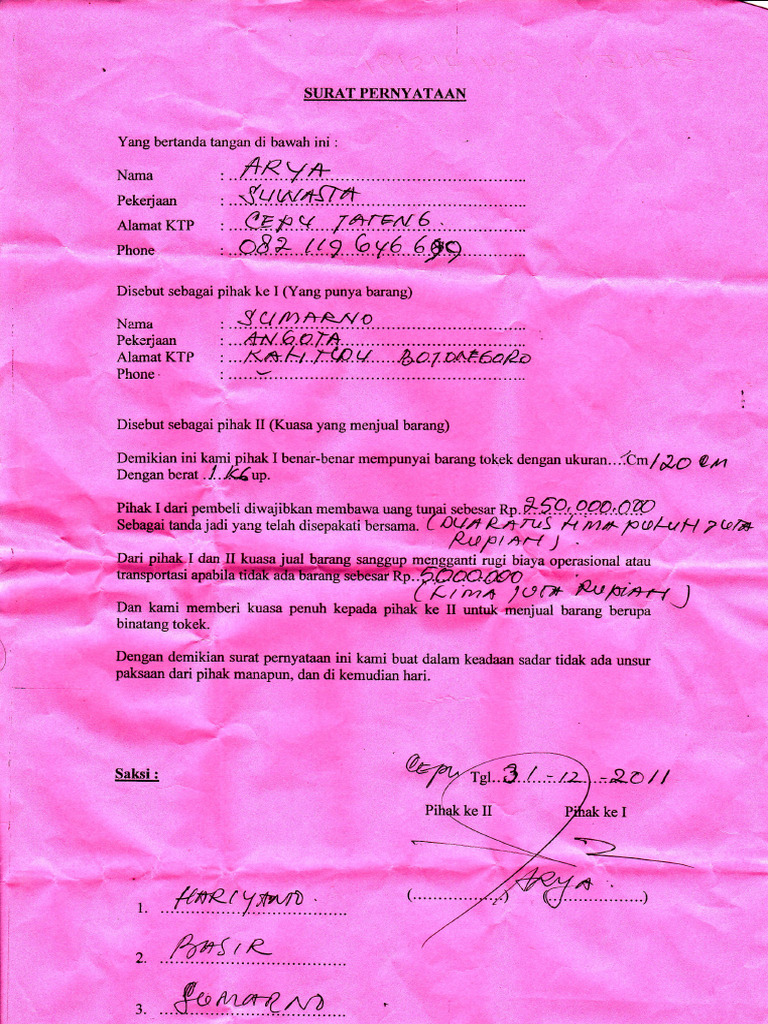 SURAT PERNYATAAN
Yang bertanda tangan di bawah ini :
Nama : ARYA
Pekerjaan : SUWASTA
Alamat KTP : CEPU JATENG.
Phone : 082 119 646 699
Disebut sebagai pihak ke I (Yang punya barang)
Nama : SUMARNO
Pekerjaan : ANGOTA
Alamat KTP : KALITIDU BOJONEGORO
Phone : -
Disebut sebagai pihak II (Kuasa yang menjual barang)
Demikian ini kami pihak I benar-benar mempunyai barang tokek dengan ukuran....Cm 120 CM
Dengan berat .1 KG up.
Pihak I dari pembeli diwajibkan membawa uang tunai sebesar Rp. 250,000.000
Sebagai tanda jadi yang telah disepakati bersama. (DUARATUS LIMA PULUH JUTA
RUPIAH).
Dari pihak I dan II kuasa jual barang sanggup mengganti rugi biaya operasional atau
transportasi apabila tidak ada barang sebesar Rp..5.000.000
(LIMA JUTA RUPIAH)
Dan kami memberi kuasa penuh kepada pihak ke II untuk menjual barang berupa
binatang tokek.
Dengan demikian surat pernyataan ini kami buat dalam keadaan sadar tidak ada unsur
paksaan dari pihak manapun, dan di kemudian hari.
Saksi :
Cepu Tgl. 31-12-2011
Pihak ke II Pihak ke I
ARYA.
(..................) (..................)
1. HARIYANTO.
2. BASIR
3. SUMARNO